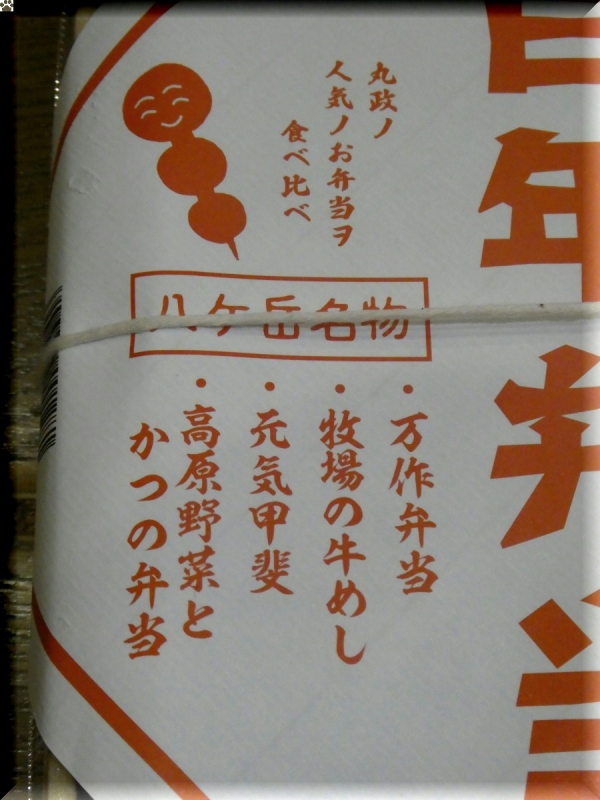 百年弁当
丸政ノ
人気ノお弁当ヲ
食べ比べ
八ケ岳名物
・万作弁当
・牧場の牛めし
・元気甲斐
・高原野菜と
かつの弁当